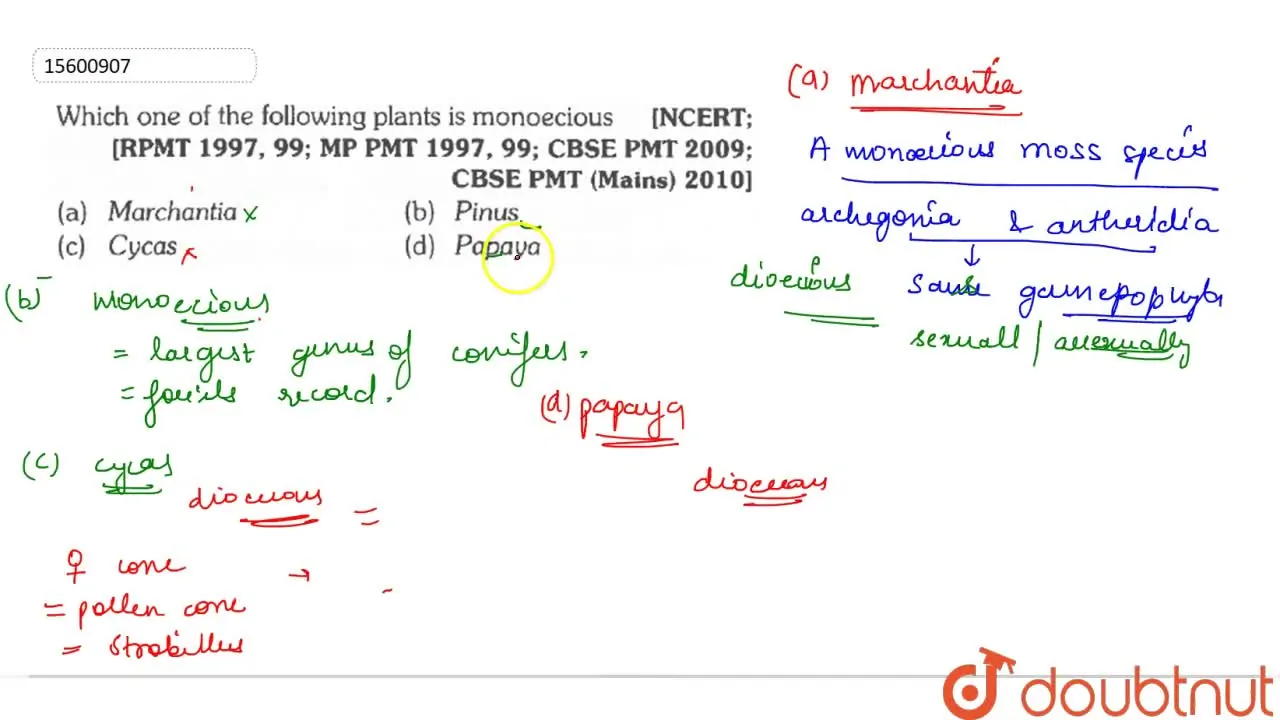 15600907
Which one of the following plants is monoecious [NCERT;
[RPMT 1997, 99; MP PMT 1997, 99; CBSE PMT 2009;
CBSE PMT (Mains) 2010]
(a) Marchantia x (b) Pinus
(c) Cycas x (d) Papaya
(a) Marchantia
A monoecious moss species
archegonia & antheridia
dioecious same gametophyte
sexuall / asexually
(b) monoecious
= largest genus of conifers.
= fossils record.
(d) papaya
dioecious
(c) cycas
dioecious =
♀ cone →
= pollen cone
= strobillus
doubtnut